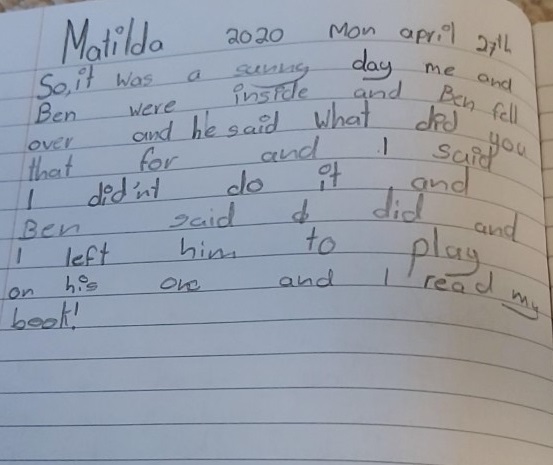 Matilda 2020 Mon april 27th
So, it was a sunny day me and
Ben were inside and Ben fell
over and he said what did you
that for and I said
I did'nt do it and
Ben said I did and
I left him to play
on his own and I read my
book!